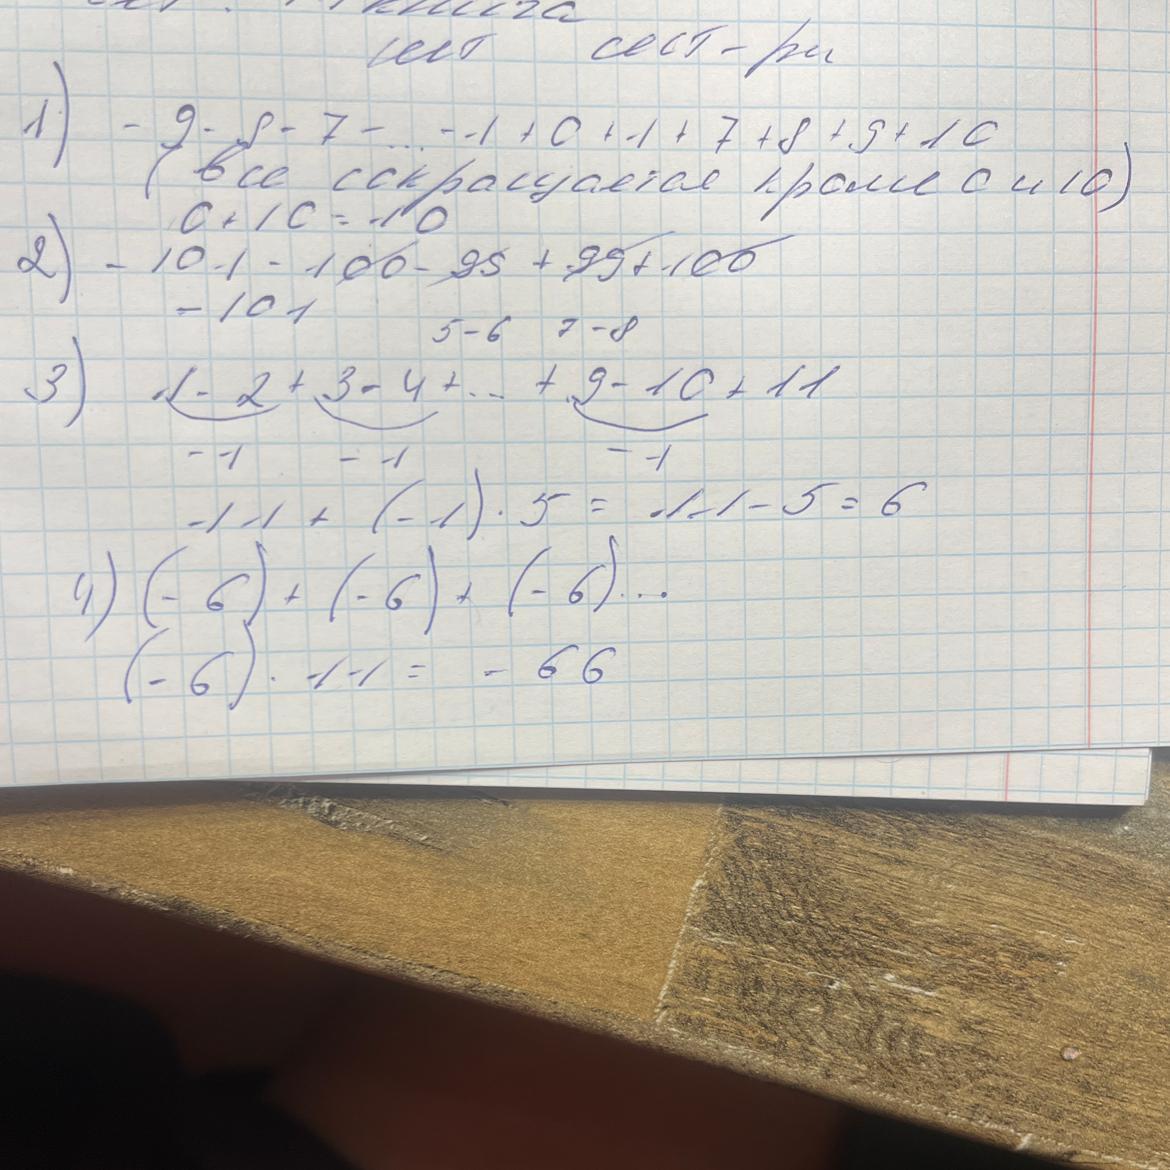 1) - 9 - 8 - 7 - ... - 1 + 0 + 1 + 7 + 8 + 9 + 10
(все сокращается кроме 0 и 10)
0 + 10 = 10
2) - 101 - 100 - 99 + 99 + 100
- 101
5-6 7-8
3) 1 - 2 + 3 - 4 + ... + 9 - 10 + 11
-1 -1 -1
11 + (-1) · 5 = 11 - 5 = 6
4) (-6) + (-6) + (-6)...
(-6) · 11 = - 66